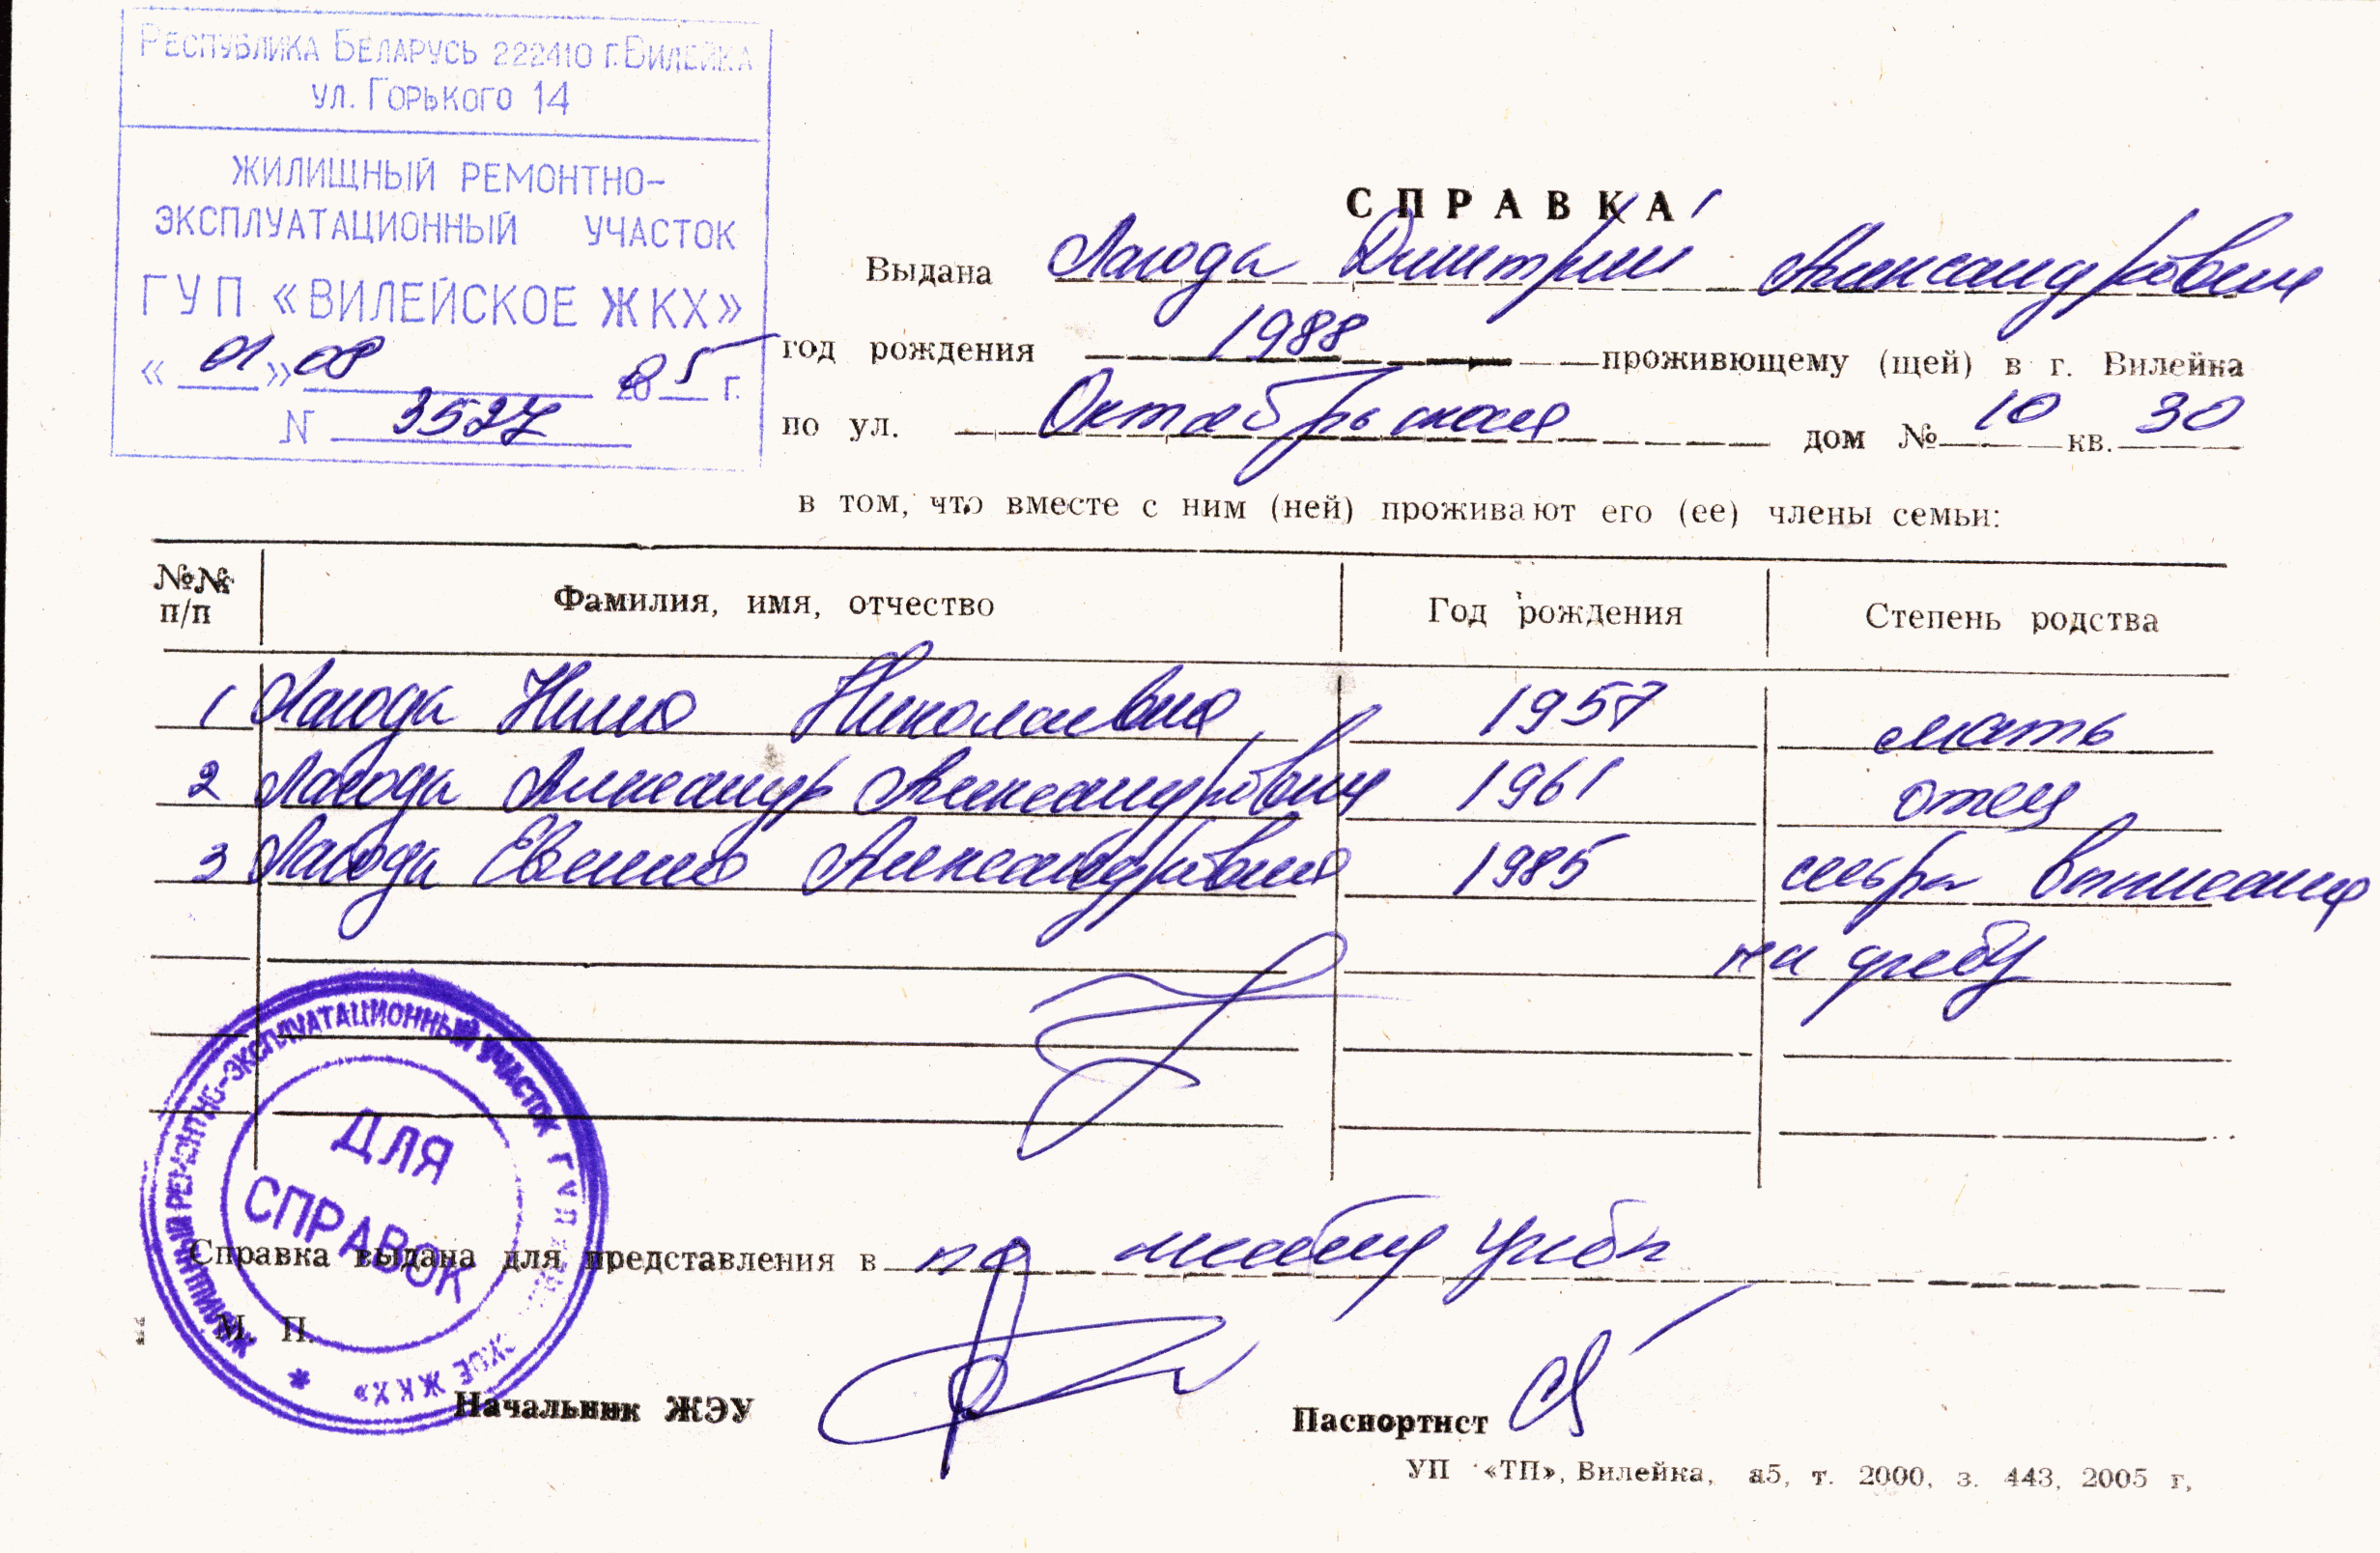 Республика Беларусь 222410 г. Вилейка
ул. Горького 14
ЖИЛИЩНЫЙ РЕМОНТНО-
ЭКСПЛУАТАЦИОННЫЙ УЧАСТОК
ГУП «ВИЛЕЙСКОЕ ЖКХ»
«01» 08 2005 г.
N 3527
СПРАВКА
Выдана Лагода Дмитрий Александрович
год рождения 1988 проживющему (щей) в г. Вилейка
по ул. Октябрьская дом № 10 кв. 30
в том, что вместе с ним (ней) проживают его (ее) члены семьи:
№№ п/п Фамилия, имя, отчество Год рождения Степень родства
1 Лагода Нина Николаевна 1957 мать
2 Лагода Александр Александрович 1961 отец
3 Лагода Евгения Александровна 1985 сестра выписана
на учебу
ЖИЛИЩНЫЙ РЕМОНТНО-ЭКСПЛУАТАЦИОННЫЙ УЧАСТОК ГУП ЖКХ»
ДЛЯ
СПРАВОК
Справка выдана для представления в по месту учебы
М. П.
Начальник ЖЭУ Паспортист
УП «ТП», Вилейка, а5, т. 2000, з. 443, 2005 г,